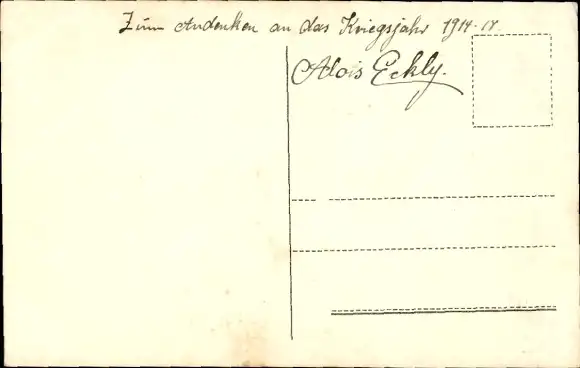 Zum Andenken an das Kriegsjahr 1914-18.
Alois Eckly.